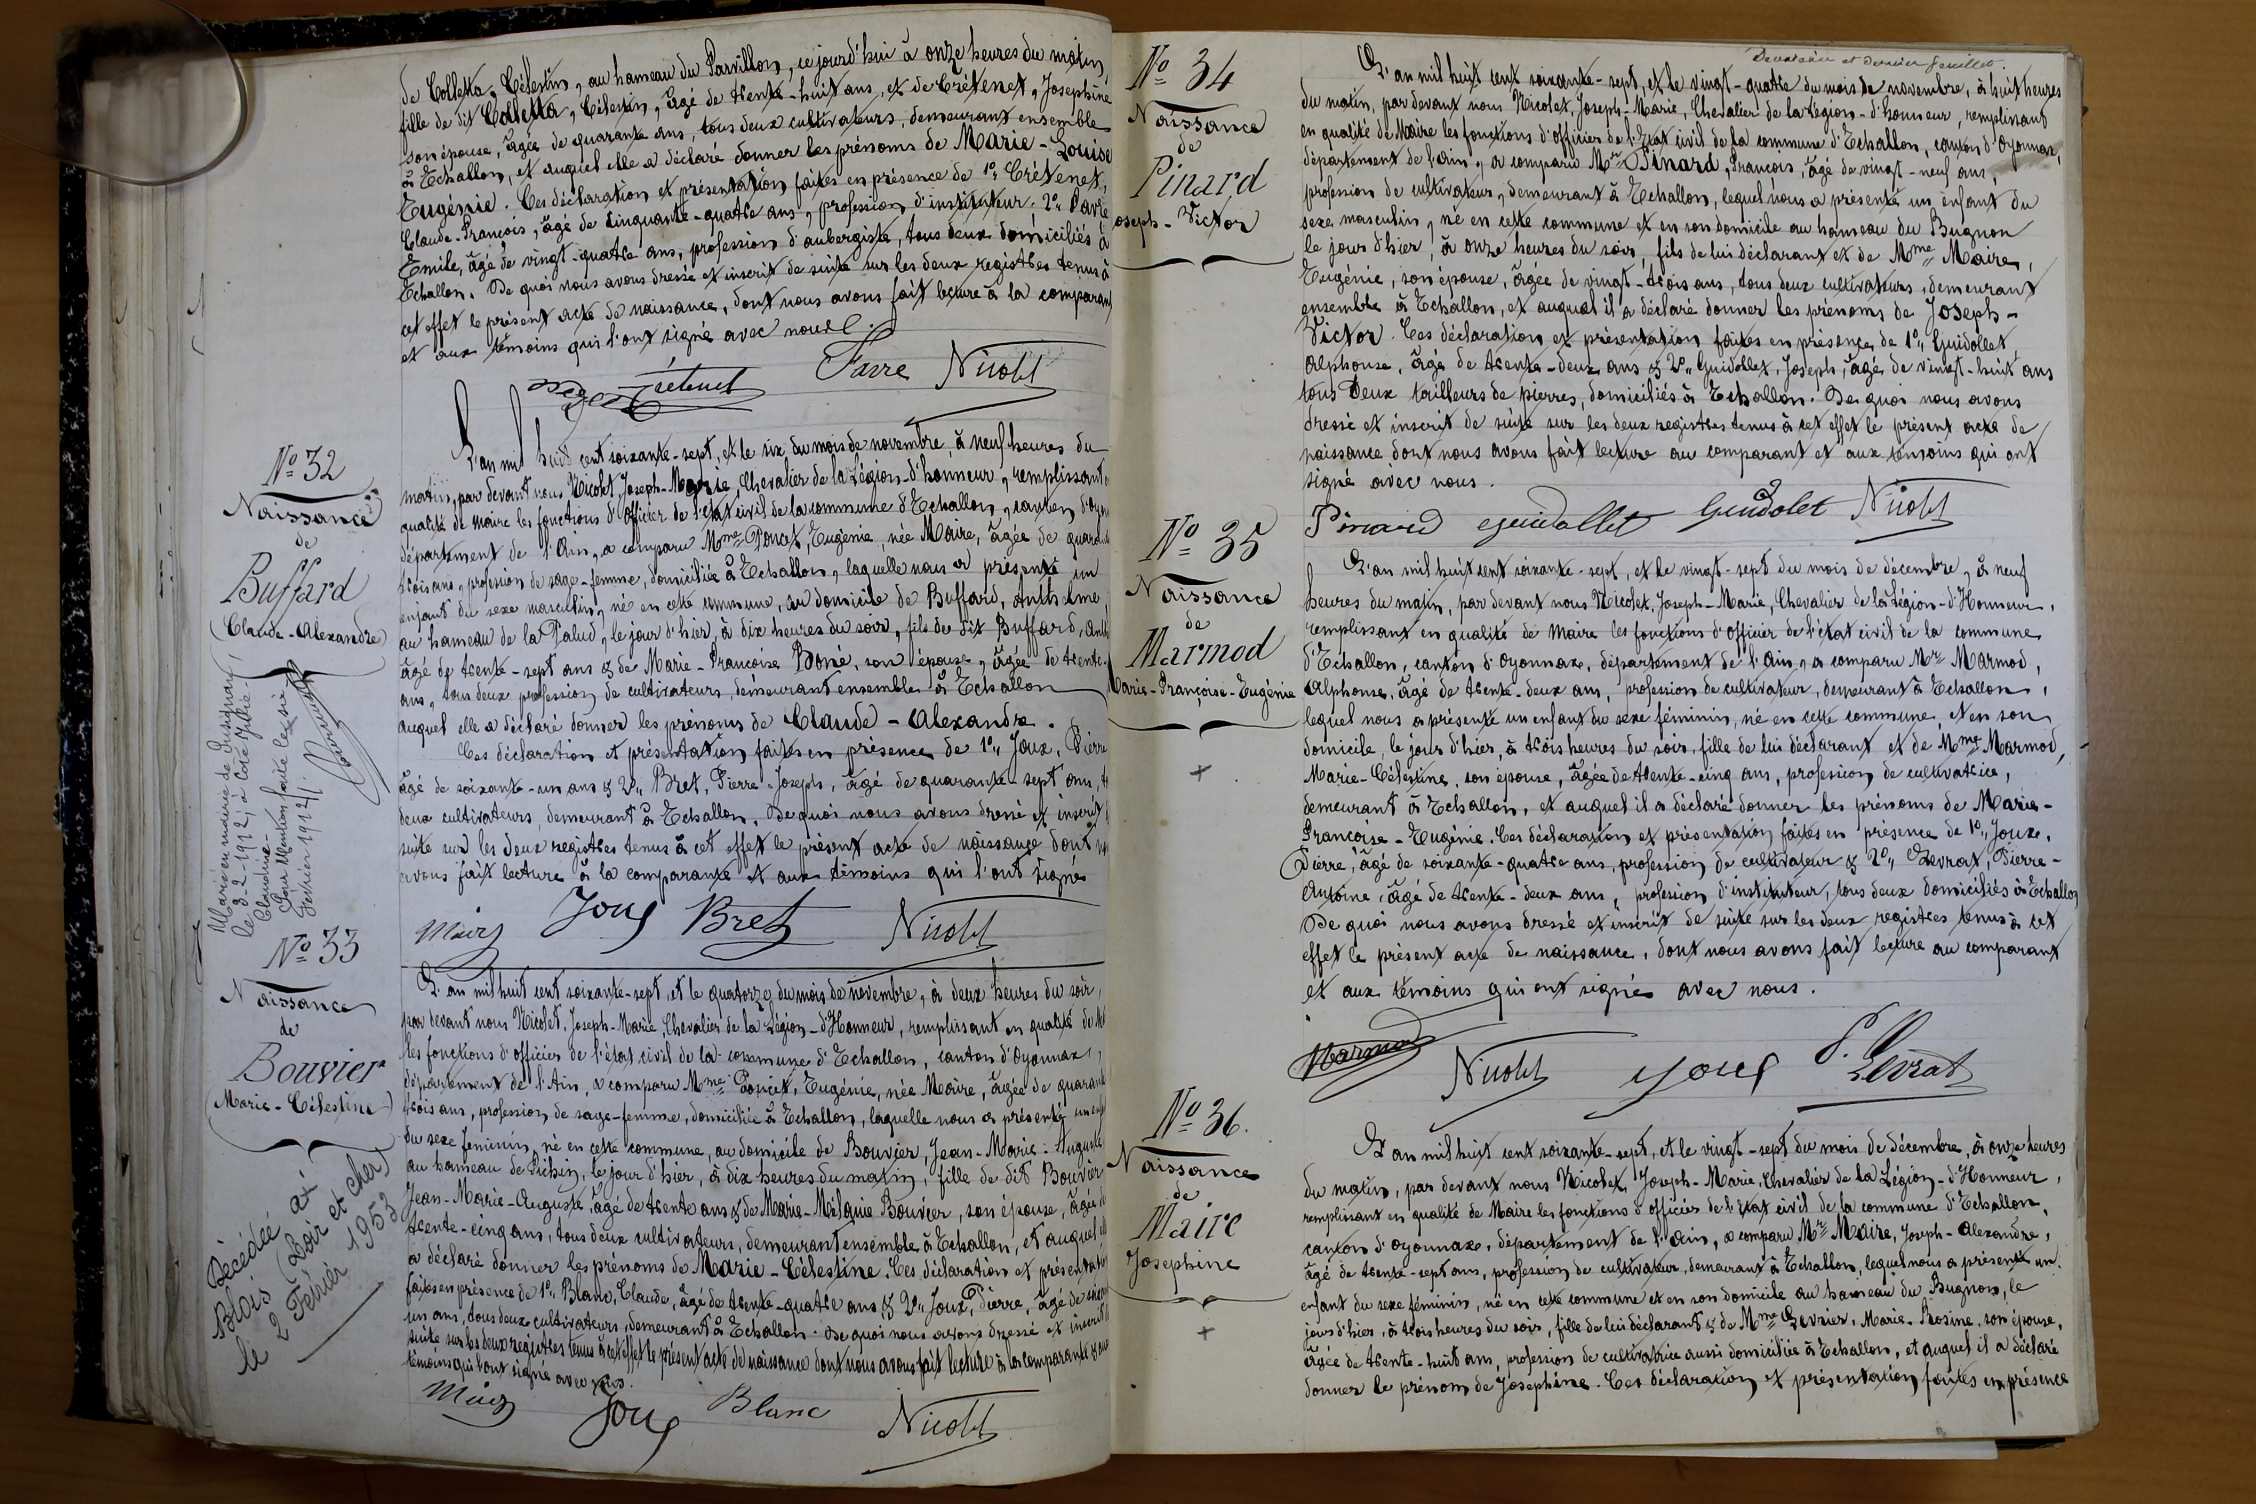 de Colletta, Célestin, au hameau du Pavillon, ce jourd'hui à onze heures du matin,
fille de dit Colletta, Célestin, âgé de trente-huit ans, et de Crétenet, Joséphine
son épouse, âgée de quarante ans, tous deux cultivateurs, demeurant ensemble
à Echallon, et auquel elle a déclaré donner les prénoms de Marie-Louise
Eugénie. Ces déclaration et présentation faites en présence de 1º, Crétenet,
Claude-François, âgé de cinquante-quatre ans, profession d'instituteur. 2º, Favre
Emile, âgé de vingt-quatre ans, profession d'aubergiste, tous deux domiciliés à
Echallon. De quoi nous avons dressé et inscrit de suite sur les deux registres tenus à
cet effet le présent acte de naissance, dont nous avons fait lecture à la comparante
et aux témoins qui l'ont signé avec nous.
Crétenet Favre Nicolet
Nº 32
Naissance
de
Buffard
(Claude-Alexandre)
Marié en mairie de
le 3-2-1912, à
Claudine.
Pour Mention faite le six
Février 1912.
L'an mil huit cent soixante-sept, et le six du mois de novembre, à neuf heures du
matin, par devant nous Nicolet, Joseph-Marie, Chevalier de la Légion-d'honneur, remplissant
qualité de maire les fonctions d'Officier de l'état civil de la commune d'Echallon, canton d'Oyon
département de l'Ain, a comparu Mme Poncet, Eugénie, née Maire, âgée de quarante
trois ans, profession de sage-femme, domiciliée à Echallon, laquelle nous a présenté un
enfant du sexe masculin, né en cette commune, au domicile de Buffard, Anthelme,
au hameau de la Palud, le jour d'hier, à dix heures du soir, fils de dit Buffard, Anth
âgé de trente-sept ans & de Marie-Françoise Boné, son épouse, âgée de trente-
ans, tous deux profession de cultivateurs, demeurant ensemble à Echallon
auquel elle a déclaré donner les prénoms de Claude-Alexandre.
Ces déclaration et présentation faites en présence de 1º, Joux, Pierre
âgé de soixante-un ans & 2º, Bret, Pierre-Joseph, âgé de quarante-sept ans, t
deux cultivateurs, demeurant à Echallon. De quoi nous avons dressé et inscrit
suite sur les deux registres tenus à cet effet le présent acte de naissance dont n
avons fait lecture à la comparante et aux témoins qui l'ont signé
Joux Bret Nicolet
Nº 33
Naissance
de
Bouvier
(Marie-Célestine)
Décédée à
Blois (Loir et Cher)
le 2 Février 1953
L'an mil huit cent soixante-sept, et le quatorze du mois de novembre, à deux heures du soir,
par devant nous Nicolet, Joseph-Marie, Chevalier de la Légion-d'Honneur, remplissant en qualité de M
les fonctions d'officier de l'état civil de la commune d'Echallon, canton d'Oyonnax,
département de l'Ain, a comparu Mme Poncet, Eugénie, née Maire, âgée de quarante
trois ans, profession de sage-femme, domiciliée à Echallon, laquelle nous a présenté un enf
du sexe féminin, né en cette commune, au domicile de Bouvier, Jean-Marie-Auguste
au hameau de, le jour d'hier, à dix heures du matin, fille de dit Bouvier
Jean-Marie-Auguste, âgé de trente ans & de Marie-Mélanie Bouvier, son épouse, âgée de
trente-cinq ans, tous deux cultivateurs, demeurant ensemble à Echallon, et auquel
a déclaré donner les prénoms de Marie-Célestine. Ces déclaration et présentation
faites en présence de 1º, Blanc, Claude, âgé de trente-quatre ans & 2º, Joux, Pierre, âgé de soixante
un ans, tous deux cultivateurs, demeurant à Echallon. De quoi nous avons dressé et inscrit
suite sur les deux registres tenus à cet effet le présent acte de naissance dont nous avons fait lecture à la comparante & aux
témoins qui l'ont signé avec nous.
Joux Blanc Nicolet
et dernier feuillet.
Nº 34
Naissance
de
Pinard
Joseph-Victor
L'an mil huit cent soixante-sept, et le vingt-quatre du mois de novembre, à huit heures
du matin, par devant nous Nicolet, Joseph-Marie, Chevalier de la Légion-d'honneur, remplissant
en qualité de Maire les fonctions d'officier de l'Etat civil de la commune d'Echallon, canton d'Oyonnax,
département de l'Ain, a comparu Mr Pinard, François, âgé de vingt-neuf ans,
profession de cultivateur, demeurant à Echallon, lequel nous a présenté un enfant du
sexe masculin, né en cette commune et en son domicile au hameau du Bugnon
le jour d'hier, à onze heures du soir, fils de lui déclarant et de Mme Maire,
Eugénie, son épouse, âgée de vingt-trois ans, tous deux cultivateurs, demeurant
ensemble à Echallon, et auquel il a déclaré donner les prénoms de Joseph-
Victor. Ces déclaration et présentation faites en présence de 1º, Guidollet,
Alphonse, âgé de trente-deux ans & 2º, Guidollet, Joseph, âgé de vingt-huit ans
tous Deux tailleurs de pierres, domiciliés à Echallon. De quoi nous avons
dressé et inscrit de suite sur les deux registres tenus à cet effet le présent acte de
naissance dont nous avons fait lecture au comparant et aux témoins qui ont
signé avec nous.
Pinard guidollet Guidolet Nicolet
Nº 35
Naissance
de
Marmod
Marie-Françoise-Eugénie
+
L'an mil huit cent soixante-sept, et le vingt-sept du mois de décembre, à neuf
heures du matin, par devant nous Nicolet, Joseph-Marie, Chevalier de la Légion-d'Honneur,
remplissant en qualité de Maire les fonctions d'officier de l'état civil de la commune
d'Echallon, canton d'Oyonnax, département de l'Ain, a comparu Mr Marmod,
Alphonse, âgé de trente-deux ans, profession de cultivateur, demeurant à Echallon,
lequel nous a présenté un enfant du sexe féminin, né en cette commune, et en son
domicile, le jour d'hier, à trois heures du soir, fille de lui déclarant et de Mme Marmod,
Marie-Célestine, son épouse, âgée de trente-cinq ans, profession de cultivatrice,
demeurant à Echallon, et auquel il a déclaré donner les prénoms de Marie-
Françoise-Eugénie. Ces déclaration et présentation faites en présence de 1º, Joux,
Pierre, âgé de soixante-quatre ans, profession de cultivateur & 2º, Levrat, Pierre-
Antoine, âgé de trente-deux ans, profession d'instituteur, tous deux domiciliés à Echallon
De quoi nous avons dressé et inscrit de suite sur les deux registres tenus à cet
effet le présent acte de naissance, dont nous avons fait lecture au comparant
et aux témoins qui ont signé avec nous.
Marmod Nicolet Joux P. Levrat
Nº 36.
Naissance
de
Maire
Joséphine
+
L'an mil huit cent soixante-sept, et le vingt-sept du mois de décembre, à onze heures
du matin, par devant nous Nicolet, Joseph-Marie, Chevalier de la Légion-d'Honneur,
remplissant en qualité de Maire les fonctions d'officier de l'état civil de la commune d'Echallon,
canton d'Oyonnax, département de l'Ain, a comparu Mr Maire, Joseph-Alexandre,
âgé de trente-sept ans, profession de cultivateur, demeurant à Echallon, lequel nous a présenté un
enfant du sexe féminin, né en cette commune et en son domicile au hameau du Bugnon, le
jour d'hier, à trois heures du soir, fille de lui déclarant & de Mme Levrier, Marie-Rosine, son épouse,
âgée de trente-huit ans, profession de cultivatrice aussi domiciliée à Echallon, et auquel il a déclaré
donner le prénom de Joséphine. Ces déclaration et présentation faites en présence